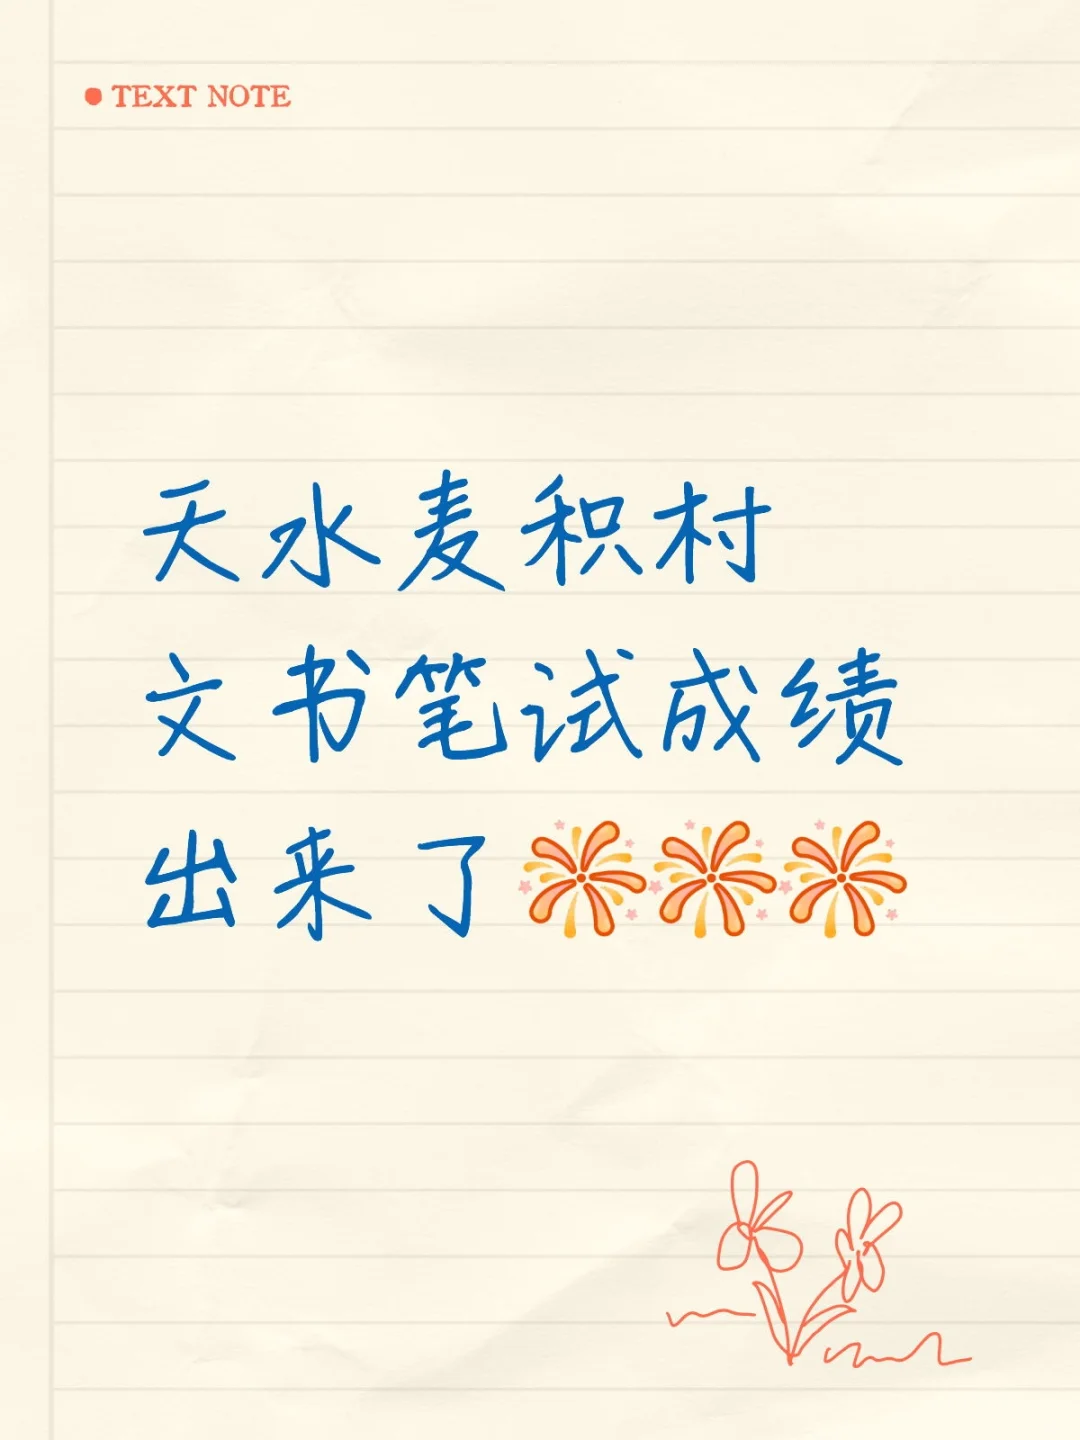 TEXT NOTE
天水麦积村
文书笔试成绩
出来了🎆🎆🎆